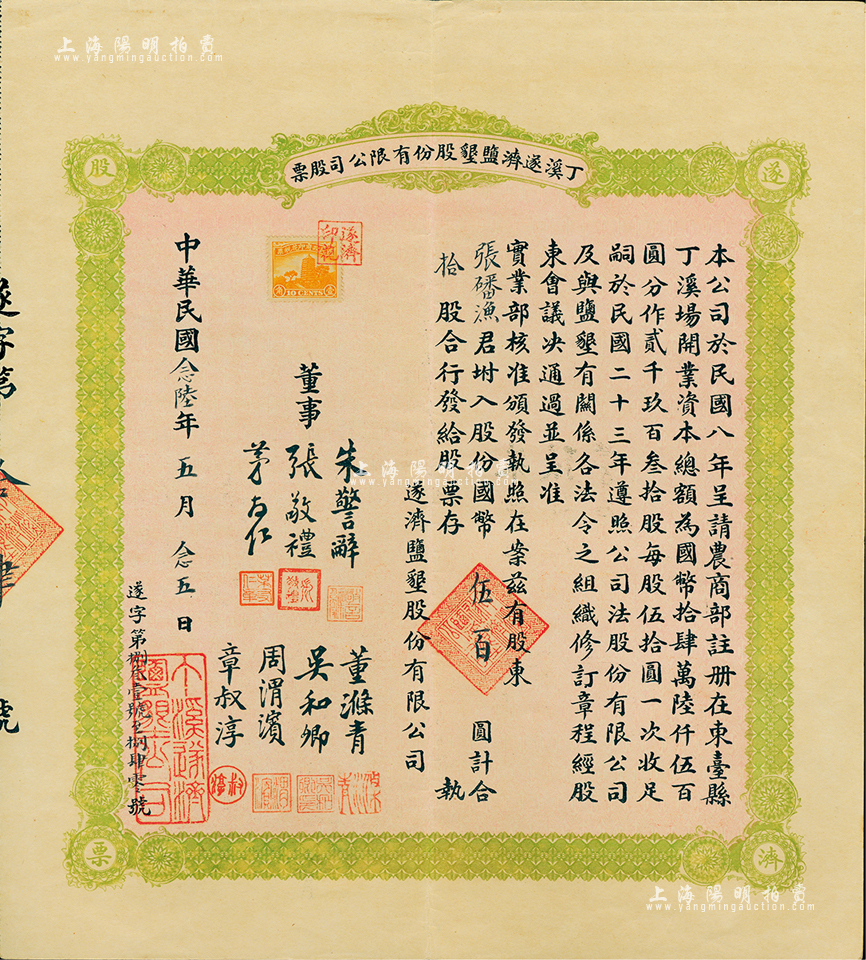 上海陽明拍賣
www.yangmingauction.com
丁溪遂濟鹽墾股份有限公司股票
遂
股
濟
票
本公司於民國八年呈請農商部註册在東臺縣
丁溪場開業資本總額為國幣拾肆萬陸仟伍百
圓分作貳千玖百叁拾股每股伍拾圓一次收足
嗣於民國二十三年遵照公司法股份有限公司
及與鹽墾有關係各法令之組織修訂章程經股
東會議决通過並呈准
實業部核准頒發執照在案茲有股東
張磻漁君坿入股份國幣 伍百 圓計合
拾 股合行發給股票存 執
遂濟鹽墾股份有限公司
董事
朱警辭
張敬禮
茅友仁
董滌青
吳和卿
周渭濱
章叔淳
10 CENTS
中華民國念陸年五月念五日
遂字第捌叁壹號至捌肆零號
遂字第
號
上海陽明拍賣
www.yangmingauction.com
上海陽明拍賣
www.yangmingauction.com